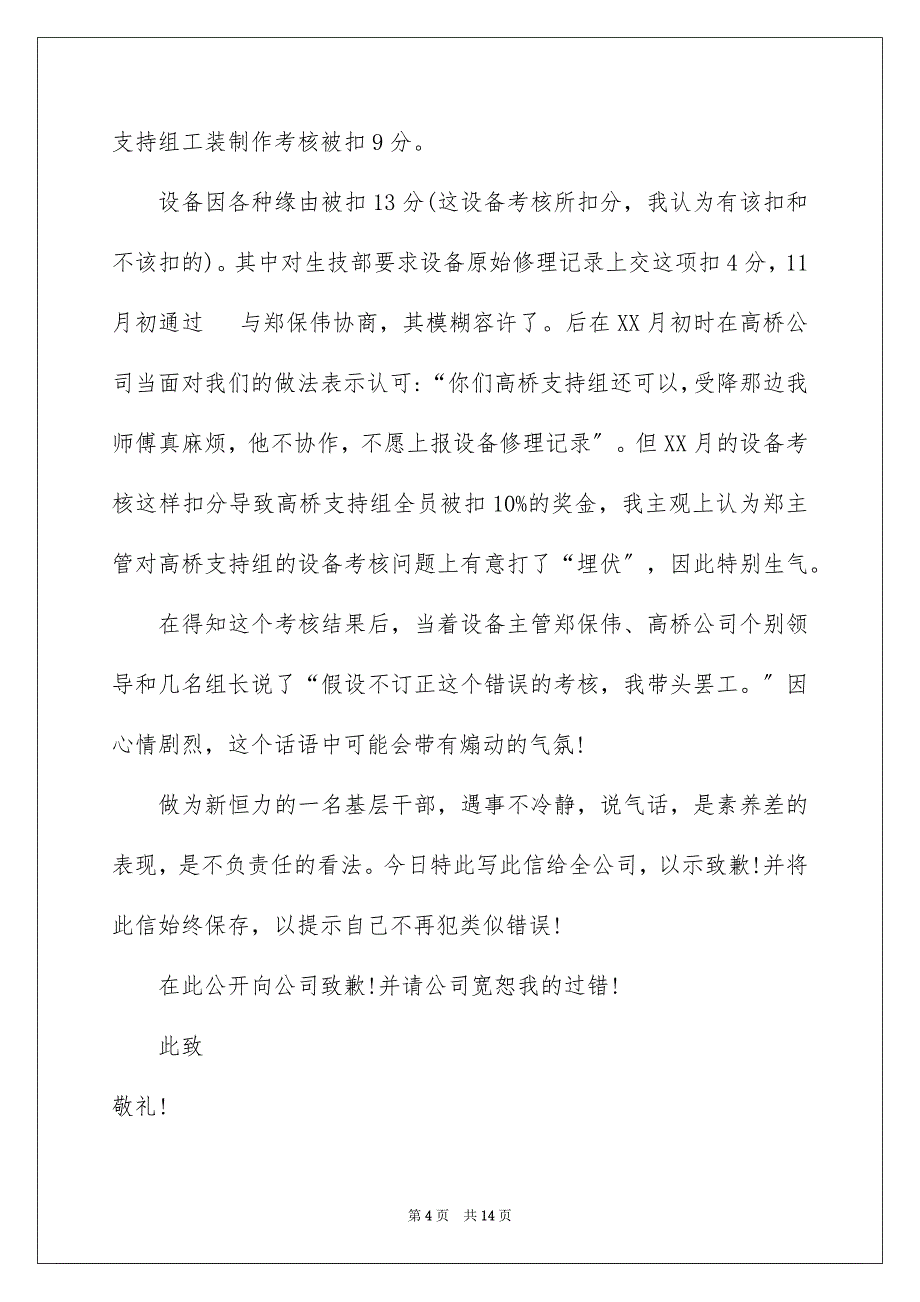 支持组工装制作考核被扣 9 分。
设备因各种缘由被扣 13 分(这设备考核所扣分，我认为有该扣和
不该扣的)。其中对生技部要求设备原始修理记录上交这项扣 4 分，11
月初通过　 与郑保伟协商，其模糊容许了。后在 XX 月初时在高桥公
司当面对我们的做法表示认可：“你们高桥支持组还可以，受降那边我
师傅真麻烦，他不协作，不愿上报设备修理记录〞。但 XX 月的设备考
核这样扣分导致高桥支持组全员被扣 10%的奖金，我主观上认为郑主
管对高桥支持组的设备考核问题上有意打了“埋伏〞，因此特别生气。
在得知这个考核结果后，当着设备主管郑保伟、高桥公司个别领
导和几名组长说了“假设不订正这个错误的考核，我带头罢工。〞因
心情剧烈，这个话语中可能会带有煽动的气氛!
做为新恒力的一名基层干部，遇事不冷静，说气话，是素养差的
表现，是不负责任的看法。今日特此写此信给全公司，以示致歉!并将
此信始终保存，以提示自己不再犯类似错误!
在此公开向公司致歉!并请公司宽恕我的过错!
此致
敬礼!
第 4 页 共 14 页